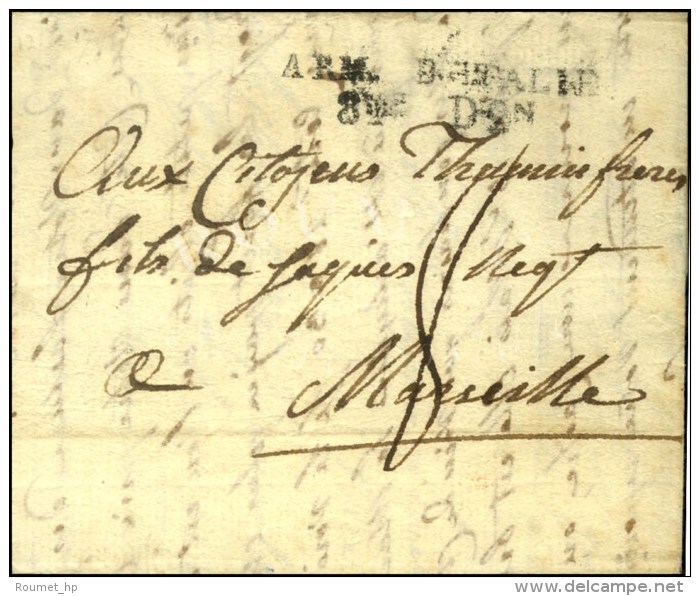 ARM. D'ITALIE
8ME DON
Aux Citoyens Thamin freres
fils de Jaques Negt
a Marseille
Roumet_hp
www.delcampe.net